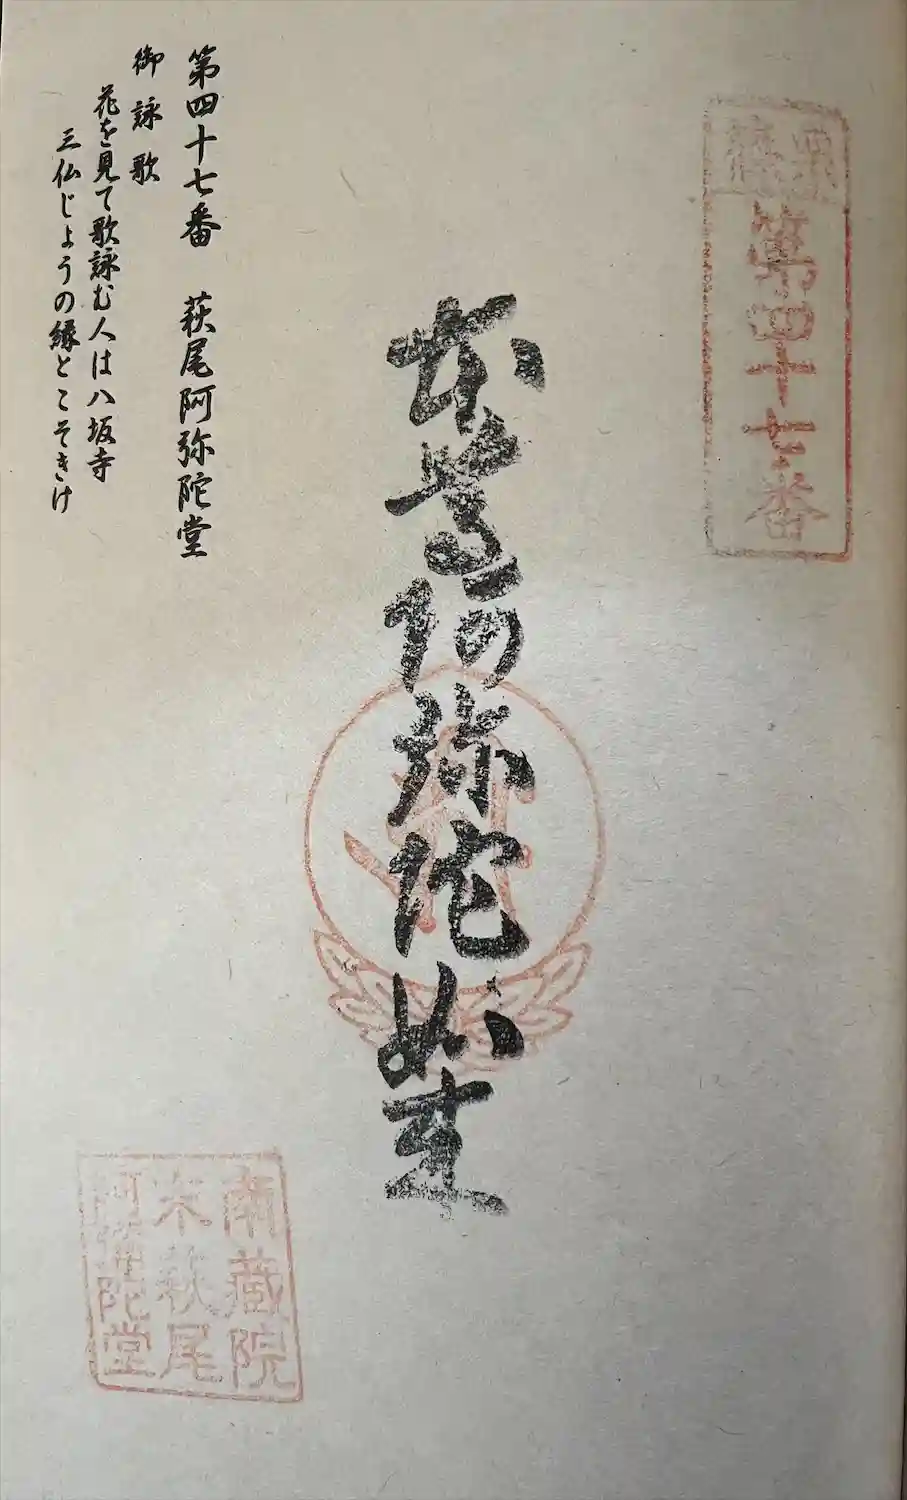 篠栗
第四十七番
本尊阿弥陀如来
第四十七番　萩尾阿弥陀堂
御詠歌
花を見て歌詠む人は八坂寺
三仏じょうの縁とこそきけ
南蔵院
末萩尾
阿弥陀堂